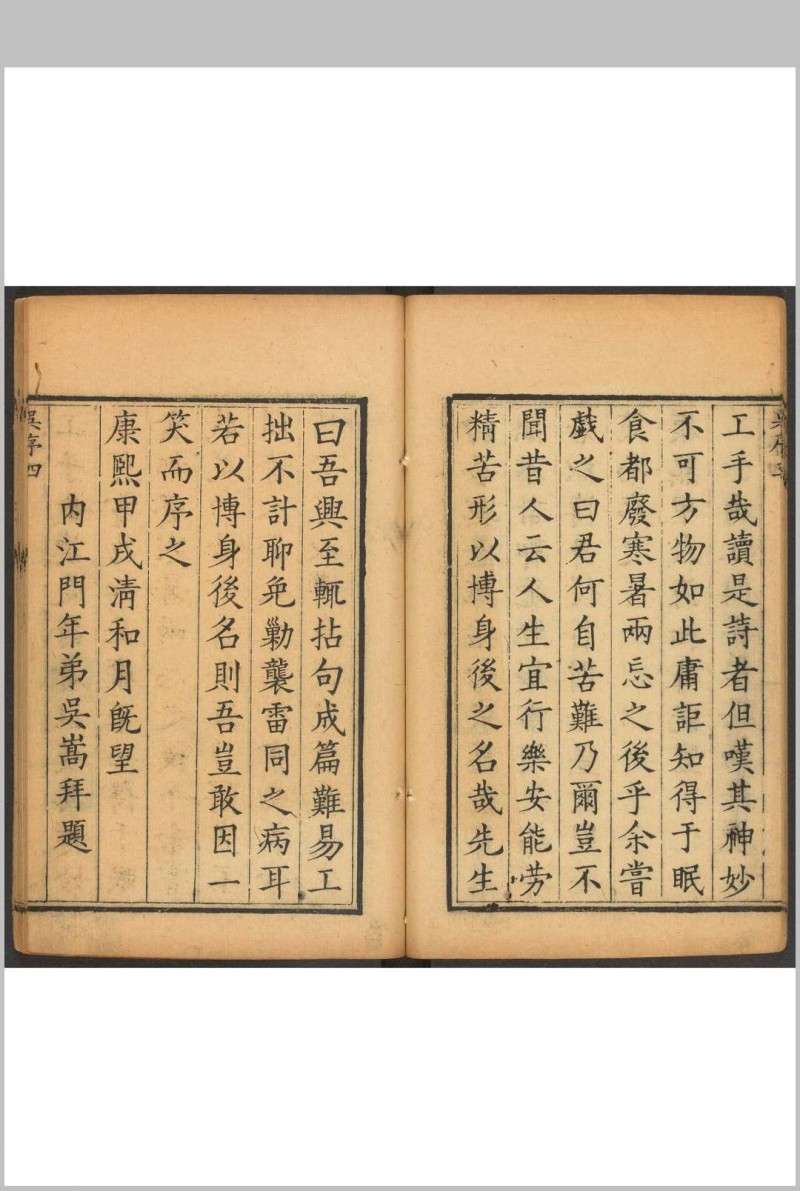 吳序三
工手哉讀是詩者但嘆其神妙
不可方物如此庸詎知得于眠
食都廢寒暑兩忘之後乎余嘗
戲之曰君何自苦難乃爾豈不
聞昔人云人生宜行樂安能勞
精苦形以博身後之名哉先生
曰吾興至輒拈句成篇難易工
拙不計聊免勦襲雷同之病耳
若以博身後名則吾豈敢因一
笑而序之
康熙甲戌清和月旣望
内江門年弟吳嵩拜題
吳序四